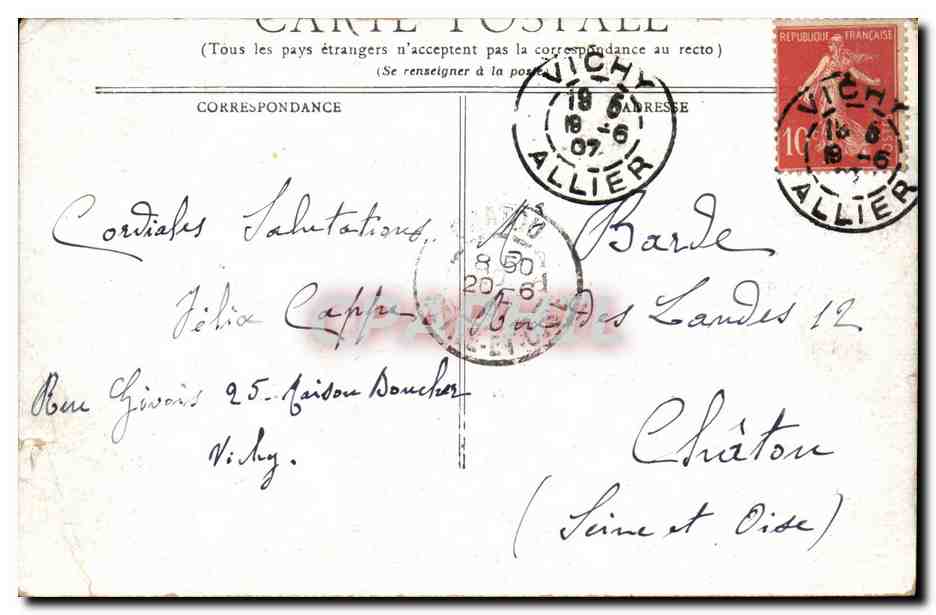 CARTE POSTALE
(Tous les pays étrangers n'acceptent pas la correspondance au recto)
(Se renseigner à la poste)
CORRESPONDANCE
ADRESSE
REPUBLIQUE FRANÇAISE
10
VICHY
19 6
19 -6
07
ALLIER
VICHY
19 -6
ALLIER
8 50
20 -6
Cordiales Salutations
Félix Cappe
Rue Givois 25 - Maison Boucher
Vichy.
Barde
Rue Des Landes 12
Châtou
(Seine et Oise)